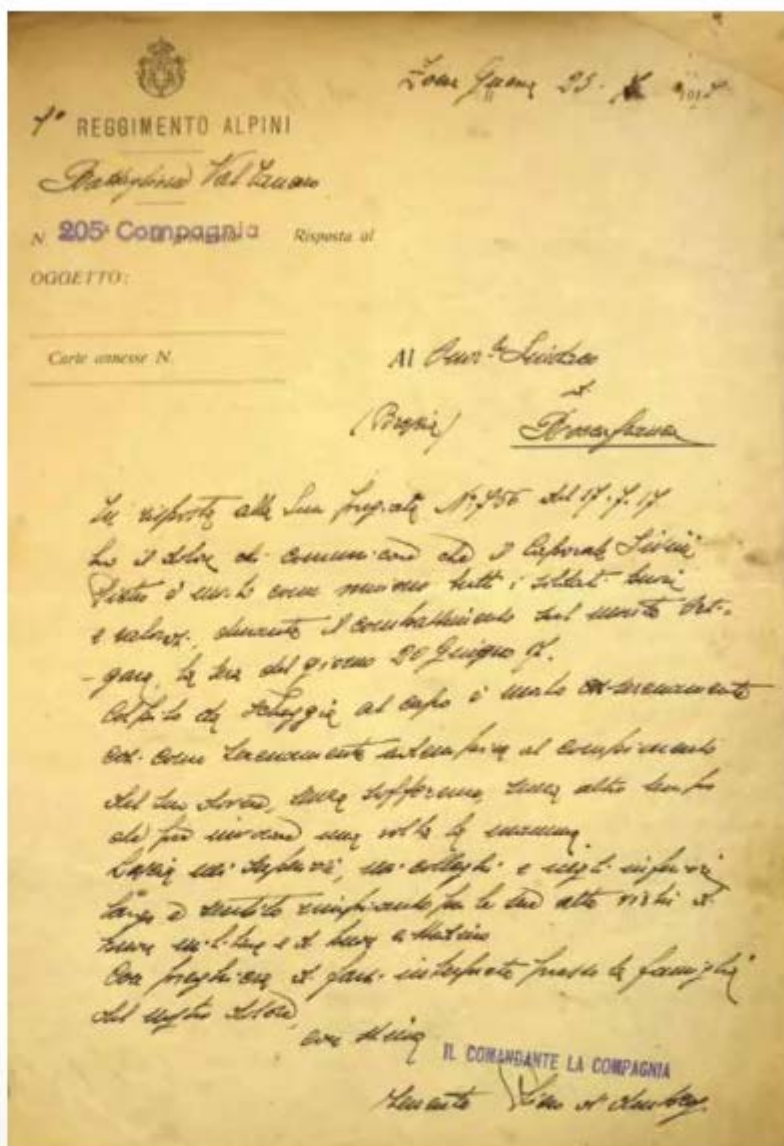 Zona Guerra 25-
1° REGGIMENTO ALPINI
Battaglione Val Tanaro
N 205ª Compagnia Risposta al
OGGETTO:
Carte annesse N.
Al Onor.le Sindaco
di
(Brescia)
In risposta alla Sua pregiata N° 756 del 17.7.17
ho il dolore di comunicare che il Caporale
Pietro è morto come muoiono tutti i soldati buoni
e valorosi, durante il combattimento sul monte Orti-
-gara, la sera del giorno 20 Giugno
Colpito da scheggia al capo è morto serenamente
così come serenamente al compimento
del suo dovere, senza sofferenze, senza altro tempo
che per invocare una volta la mamma.
Lascia nei superiori, nei colleghi e negli inferiori
largo e sentito rimpianto per le sue alte virtù di
buon militare e di buon
Con preghiera di farsi interprete presso la famiglia
del nostro dolore,
con stima
IL COMANDANTE LA COMPAGNIA
Tenente